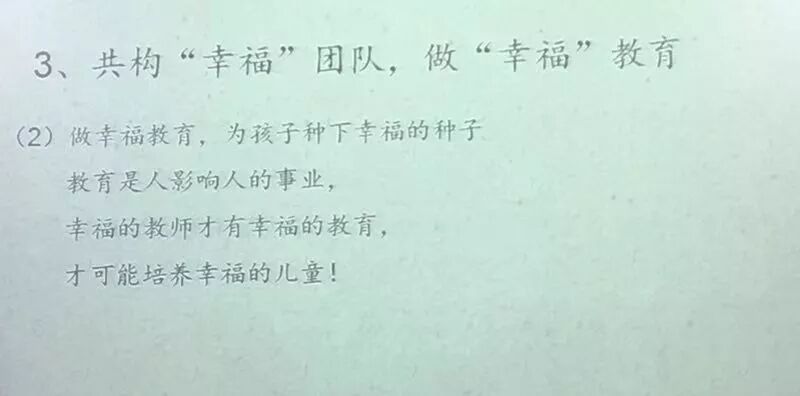 3、共构“幸福”团队，做“幸福”教育
（2）做幸福教育，为孩子种下幸福的种子
教育是人影响人的事业，
幸福的教师才有幸福的教育，
才可能培养幸福的儿童！